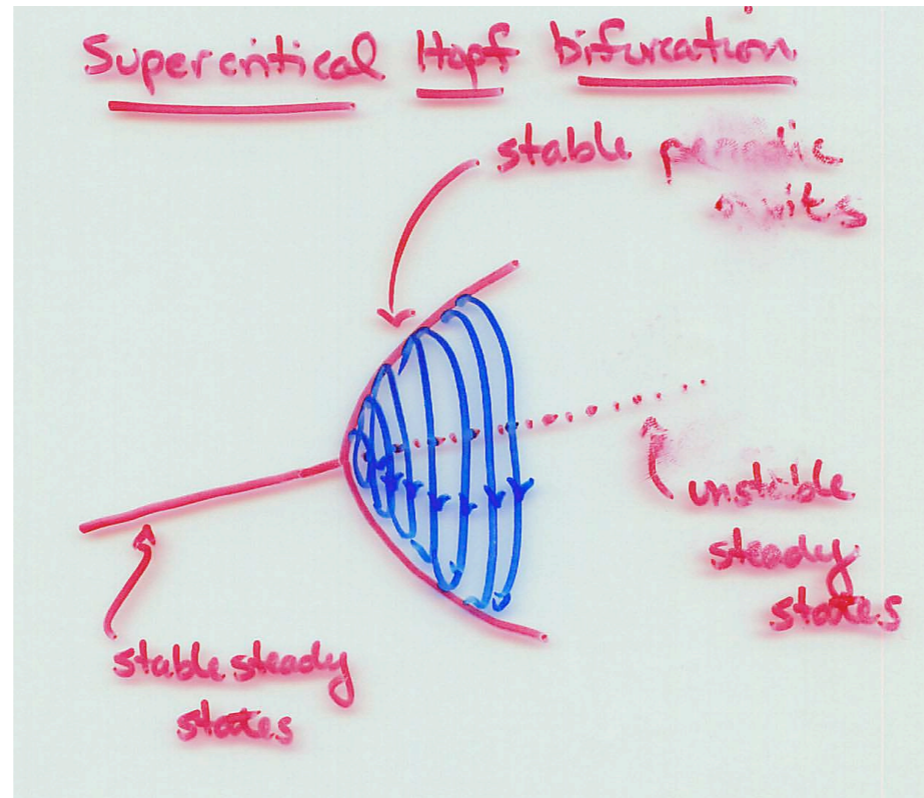 Supercritical Hopf bifurcation
stable periodic
orbits
unstable
steady
states
stable steady
states